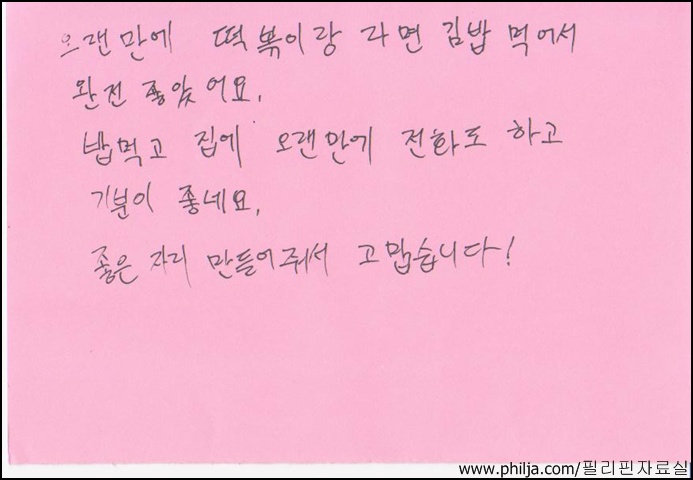 오랜만에 떡볶이랑 라면 김밥 먹어서
완전 좋았어요.
밥먹고 집에 오랜만에 전화도 하고
기분이 좋네요.
좋은 자리 만들어줘서 고맙습니다!
www.philja.com/필리핀자료실